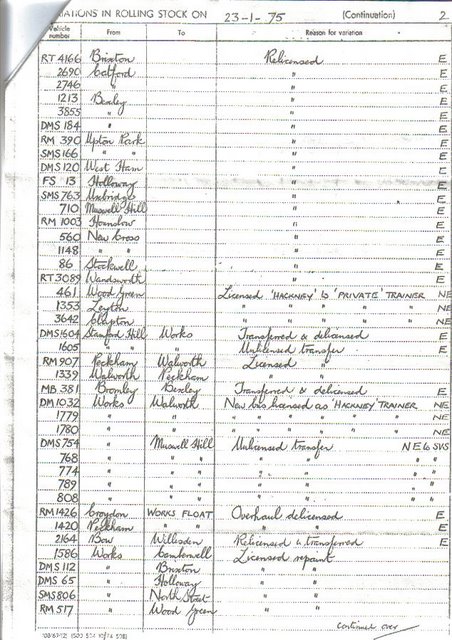 IATIONS IN ROLLING STOCK ON 23-1-75 (Continuation) 2
Vehicle number From To Reason for variation
RT 4166 Brixton Relicensed E
2690 Catford " E
2746 " " E
1213 Bexley " E
3855 " " E
DMS 184 " " E
RM 390 Upton Park " E
SMS 166 " " " E
DMS 120 West Ham " E
FS 13 Holloway " E
SMS 763 Uxbridge " E
710 Muswell Hill " E
RM 1003 Hounslow " E
560 New Cross " E
1148 " " " E
86 Stockwell " E
RT 3089 Wandsworth " E
461 Wood Green Licensed 'HACKNEY' to 'PRIVATE' TRAINER NE
1353 Leyton " " " " " NE
3642 Clapton " " " " " NE
DMS 1604 Stamford Hill Works Transferred & delicensed E
1605 " " " Unlicensed transfer E
RM 907 Peckham Walworth Licensed "
1339 Walworth Peckham " "
MB 381 Bromley Bexley Transferred & delicensed E
DM 1032 Works Walworth New bus licensed as 'HACKNEY' TRAINER NE
1779 " " " " " " " " NE
1780 " " " " " " " " NE
DMS 754 " Muswell Hill Unlicensed transfer NE to SVS
768 " " " " " "
774 " " " " " "
789 " " " " " "
808 " " " " " "
RM 1426 Croydon WORKS FLOAT Overhaul delicensed E
1420 Peckham " " " " E
2164 Bow Willesden Relicensed & transferred E
1586 Works Camberwell Licensed repaint
DMS 112 " Brixton " "
DMS 65 " Holloway " "
SMS 806 " North Street " "
RM 517 " Wood Green " "
continued over